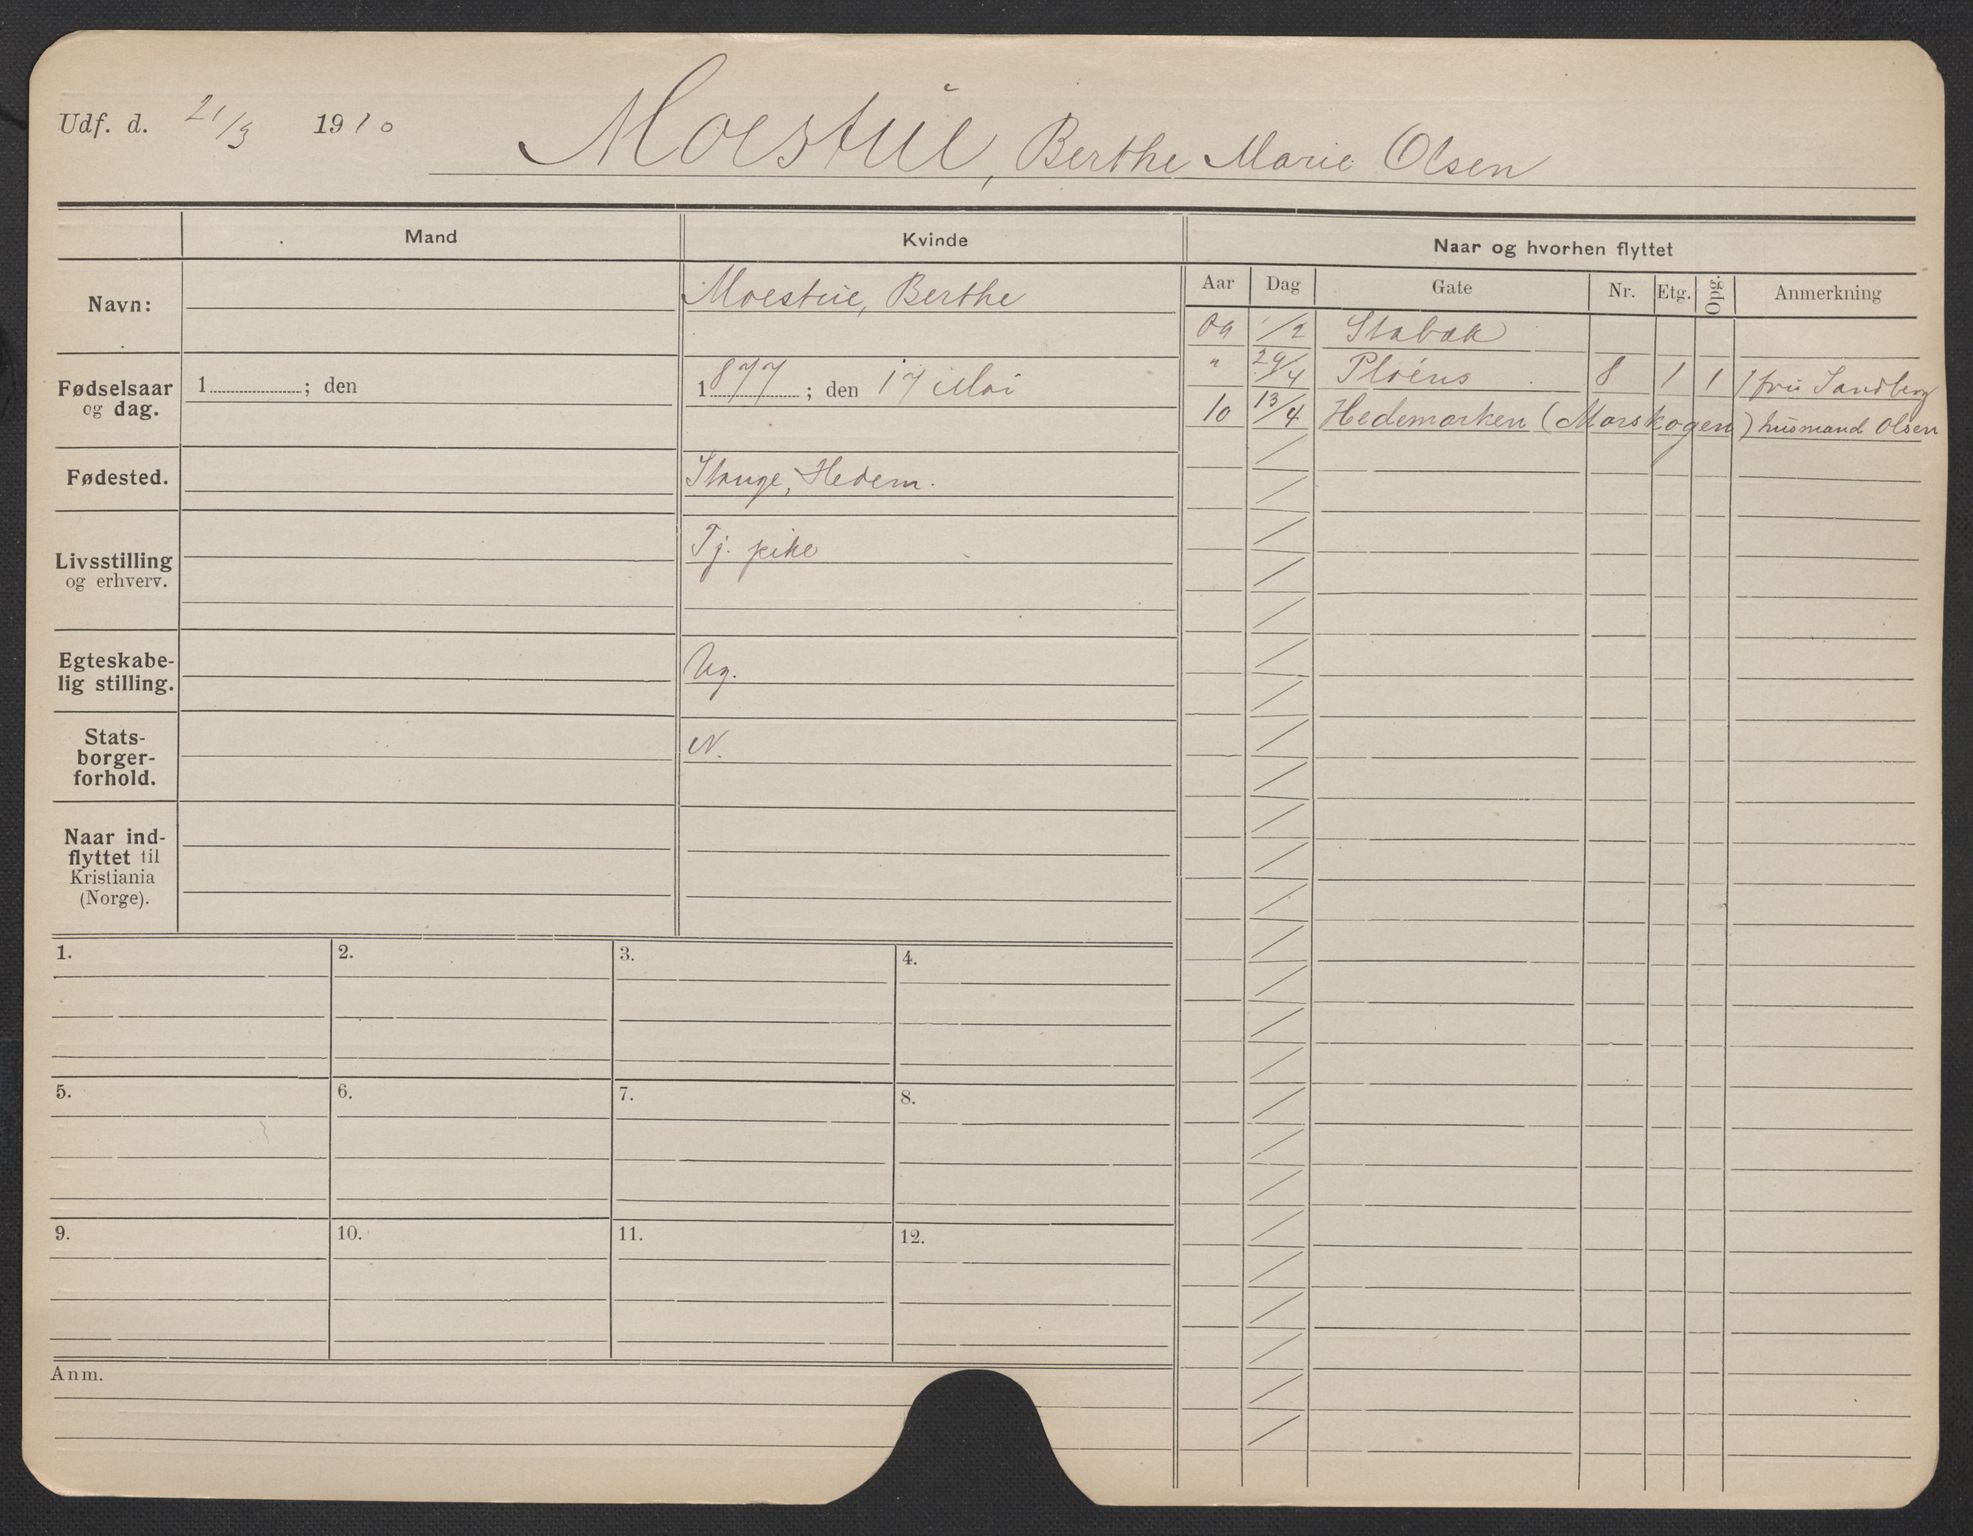 Udf. d. 21/3 1910 Moestue, Berthe Marie Olsen
Mand Kvinde Naar og hvorhen flyttet
Aar Dag Gate Nr. Etg. Opg. Anmerkning
Navn: Moestue, Berthe
09 1/2 Stabæk
" 29/4 Ploéns 8 1 1 / fru Sandberg
Fødselsaar og dag. 1 ; den 1877 ; den 17 Mai
10 13/4 Hedemarken (Morskogen) husmand Olsen
Fødested. Stange, Hedem.
Livsstilling og erhverv. Tj. pike
Egteskabe-
lig stilling. Ug.
Stats-
borger-
forhold. N.
Naar ind-
flyttet til
Kristiania
(Norge).
1. 2. 3. 4.
5. 6. 7. 8.
9. 10. 11. 12.
Anm.